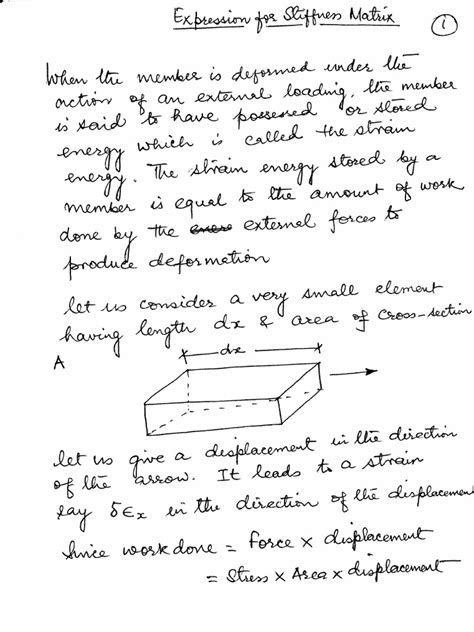 Expression for Stiffness Matrix
1
When the member is deformed under the
action of an external loading, the member
is said to have possessed or stored
energy which is called the strain
energy. The strain energy stored by a
member is equal to the amount of work
done by the external forces to
produce deformation
let us consider a very small element
having length dx & area of cross-section
A
dx
let us give a displacement in the direction
of the arrow. It leads to a strain
say δϵx in the direction of the displacemen
Since workdone = Force × displacement
= Stress × Area × displacement